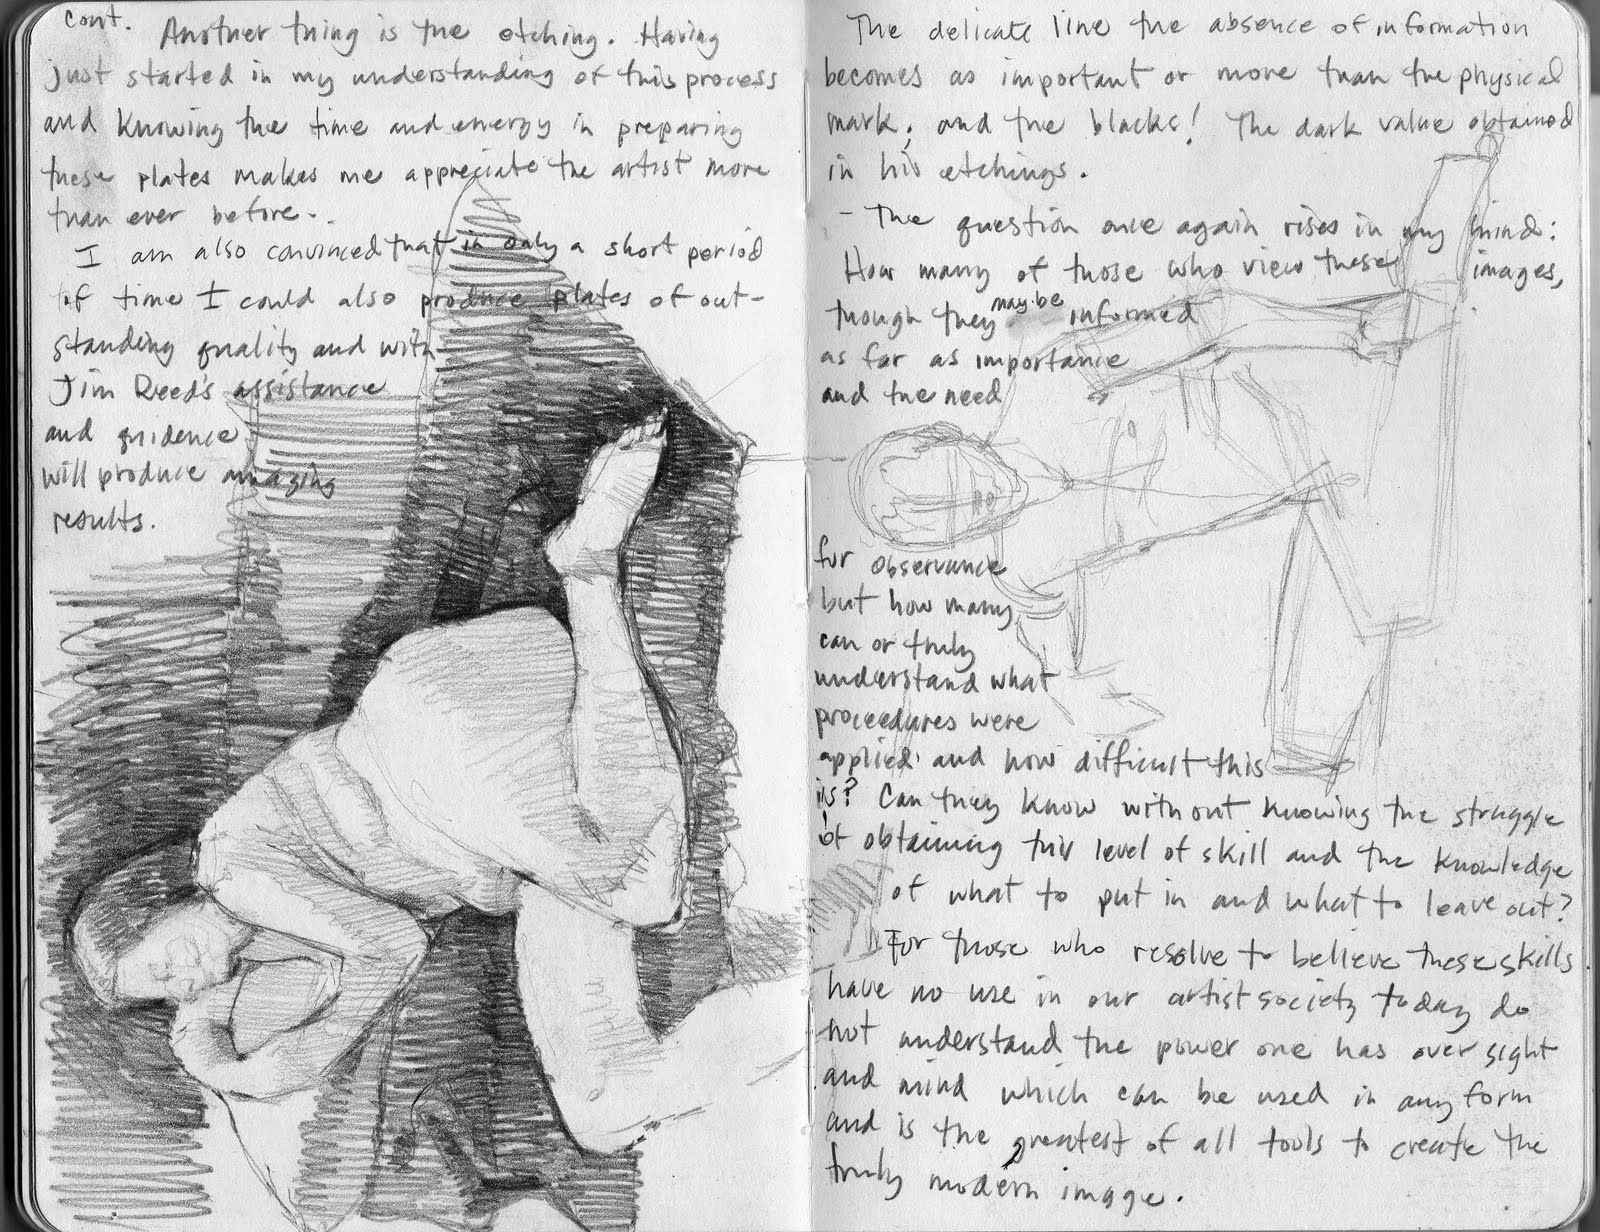 cont.
Another thing is the etching. Having
just started in my understanding of this process
and knowing the time and energy in preparing
these plates makes me appreciate the artist more
than ever before..
I am also convinced that in only a short period
of time I could also produce plates of out-
standing quality and with
Jim Reed's assistance
and guidence
will produce amazing
results.
The delicate line the absence of information
becomes as important or more than the physical
mark, and the blacks! The dark value obtained
in his etchings.
- The question once again rises in my mind:
How many of those who view these images,
though they may be informed
as far as importance
and the need
for observance
but how many
can or truly
understand what
proceedures were
applied and how difficult this
is? Can they know without knowing the struggle
of obtaining this level of skill and the knowledge
of what to put in and what to leave out?
For those who resolve to believe these skills
have no use in our artist society today do
not understand the power one has over sight
and mind which can be used in any form
and is the greatest of all tools to create the
truly modern image.